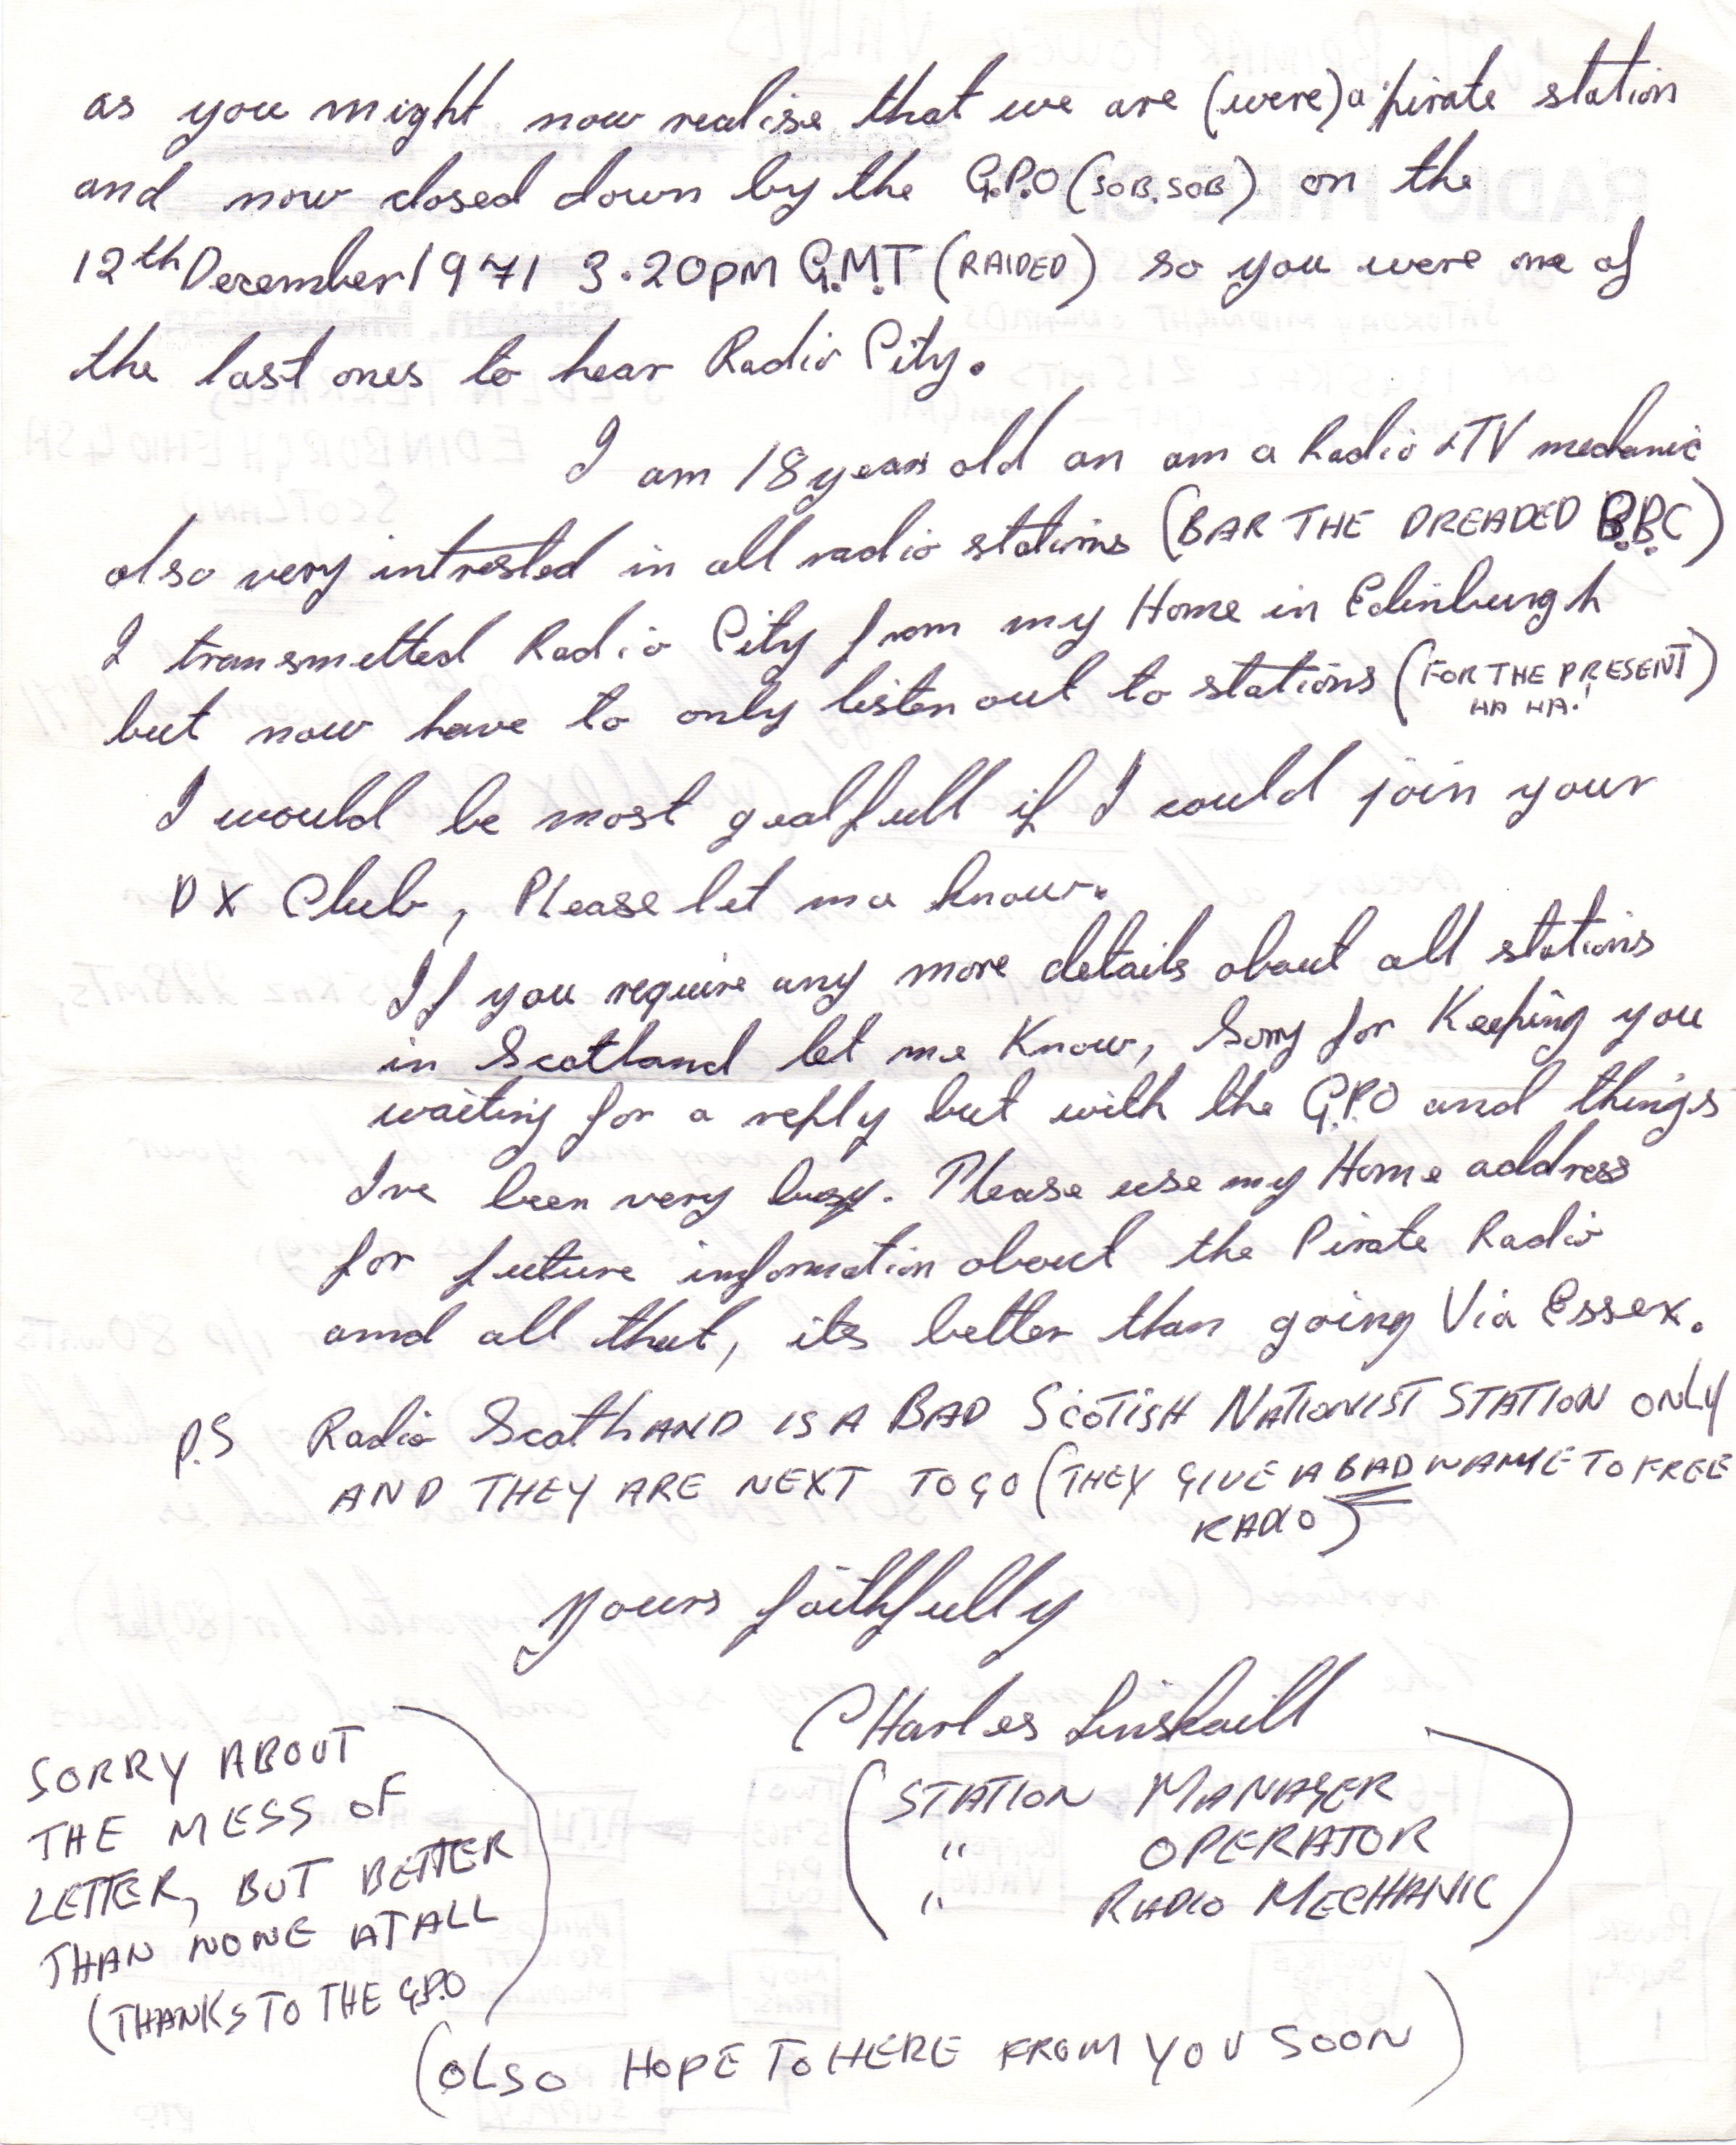 as you might now realise that we are (were) a pirate station
and now closed down by the G.P.O (SOB, SOB) on the
12th December 1971 3.20PM G.M.T (RAIDED) so you were one of
the last ones to hear Radio City.
I am 18 years old an am a Radio & TV mechanic
also very intrested in all radio stations (BAR THE DREADED B.B.C)
I transmetted Radio City from my Home in Edinburgh
but now have to only listen out to stations (FOR THE PRESENT)
HA HA!
I would be most gealfull if I could join your
DX Club, Please let me know.
If you require any more details about all stations
in Scotland let me Know, Sorry for Keeping you
waiting for a reply but with the G.P.O and things
Ive been very busy. Please use my Home address
for future information about the Pirate Radio
and all that, its better than going Via Essex.
P.S Radio ScotLAND IS A BAD SCOTISH NATIONIST STATION ONLY
AND THEY ARE NEXT TO GO (THEY GIVE A BAD NAME TO FREE
RADIO)
Yours faithfully
CHarles Linskaill
(STATION MANAGER
" OPERATOR
" RADIO MECHANIC)
SORRY ABOUT
THE MESS OF
LETTER, BUT BETTER
THAN NONE AT ALL
(THANKS TO THE G.P.O)
(OLSO HOPE TO HERE FROM YOU SOON)